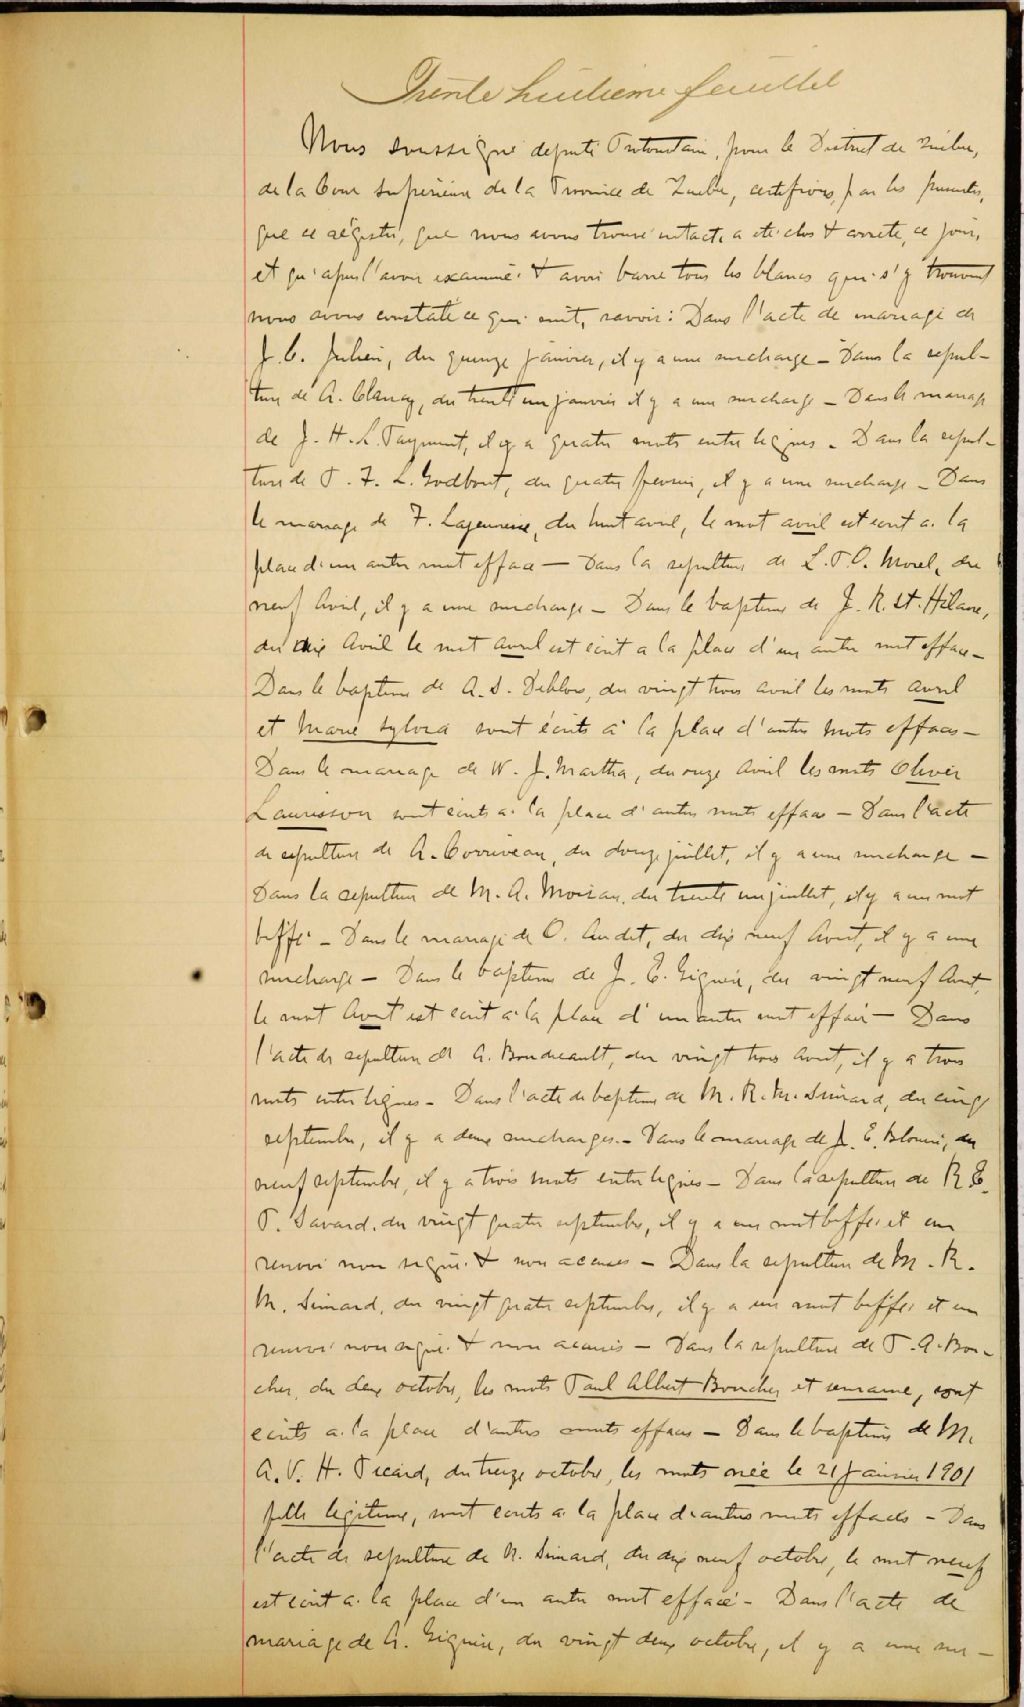 Trente huitieme feuillet
Nous soussigné deputé Protonotaire, pour le District de Québec,
de la Cour Supérieure de la Province de Quebec, certifions, par les presentes,
que ce régistre, que nous avons trouvé intact, a eté clos & arreté, ce jour,
et qu'apres l'avoir examiné & avoir barré tous les blancs qui s'y trouvent
nous avons constaté ce qui suit, savoir: Dans l'acte de mariage de
J. C. Julien, du quinze janvier, il y a une surcharge - Dans la sepul-
ture de A. Clancy, du trente un janvier il y a une surcharge - Dans le mariage
de J. H. L. Paymint, il y a quatre mots entre lignes - Dans la sepul-
ture de P. F. L. Godbout, du quatre fevrier, il y a une surcharge - Dans
le mariage de F. Lajeunesse, du huit avril, le mot avril est ecrit a la
place d'un autre mot effacé - Dans la sepulture de L. P. O. Morel, du
neuf Avril, il y a une surcharge - Dans le bapteme de J. R. St. Hilaire,
du dix Avril le mot avril est ecrit a la place d'un autre mot effacé -
Dans le bapteme de A. S. Deblois, du vingt trois avril les mots avril
et Marie Sylvia sont écrits à la place d'autres mots effacés -
Dans le mariage de W. J. Martha, du onze Avril les mots Olivier
Laurisson sont ecrits a la place d'autres mots effacés - Dans l'acte
de sepulture de A. Corriveau, du douze juillet, il y a une surcharge -
Dans la sepulture de M. A. Moisan, du trente un juillet, il y a un mot
biffé - Dans le mariage de O. Audet, du dix neuf Aout, il y a une
surcharge - Dans le bapteme de J. E. Giguère, du vingt neuf Aout,
le mot Aout est ecrit à la place d'un autre mot effacé - Dans
l'acte de sepulture de A. Boudreault, du vingt trois Aout, il y a trois
mots entre lignes - Dans l'acte de bapteme de M. R. M. Simard, du cinq
septembre, il y a deux surcharges - Dans le mariage de J. E. Blouin, du
neuf septembre, il y a trois mots entre lignes - Dans la sepulture de R. E.
P. Savard, du vingt quatre septembre, il y a un mot biffé et un
renvoi non signé & non accusés - Dans la sepulture de M. R.
M. Simard, du vingt quatre septembre, il y a un mot biffé et un
renvoi non signé & non accusés - Dans la sepulture de P. A. Bou-
cher, du deux octobre, les mots Paul Albert Boucher et semaine, sont
ecrits a la place d'autres mots effacés - Dans le bapteme de M.
A. V. H. Picard, du treize octobre, les mots née le 21 janvier 1901
fille legitime, sont ecrits a la place d'autres mots effacés - Dans
l'acte de sepulture de N. Simard, du dix neuf octobre, le mot neuf
est ecrit a la place d'un autre mot effacé - Dans l'acte de
mariage de A. Giguère, du vingt deux octobre, il y a une sur-